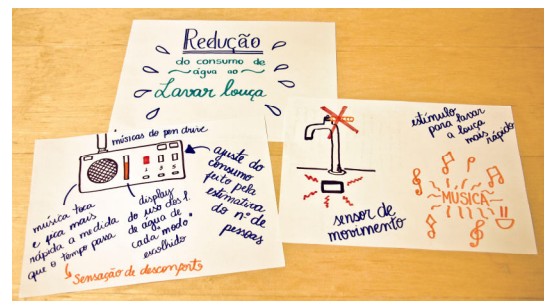 Redução
do consumo de
água ao
Lavar louça
músicas do pen drive
ajuste do
consumo
feito pela
estimativa
do nº de
pessoas
música toca
e fica mais
rápida a medida
que o tempo passa
Sensação de desconforto
display
do uso dos l.
de água de
cada "modo"
escolhido
sensor de
movimento
estímulo
para lavar
a louça
mais
rápido
MUSICA